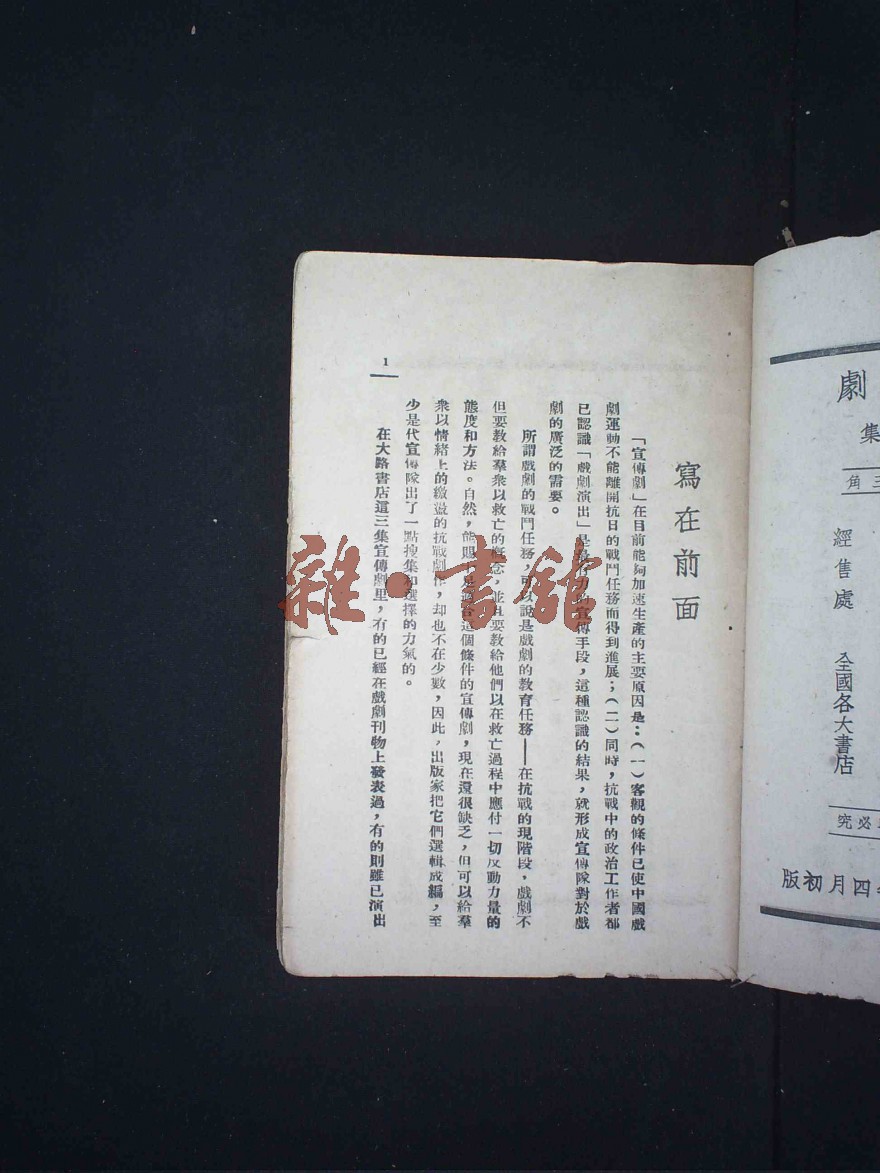 劇
集
三角
經售處 全國各大書店
必究
四月初版
寫在前面
「宣傳劇」在目前能夠加速生產的主要原因是:(一)客觀的條件已使中國戲
劇運動不能離開抗日的戰鬥任務而得到進展;(二)同時,抗戰中的政治工作者都
已認識「戲劇演出」是最有力的宣傳手段,這種認識的結果,就形成宣傳隊對於戲
劇的廣泛的需要。
所謂戲劇的戰鬥任務,可以說是戲劇的教育任務——在抗戰的現階段,戲劇不
但要教給羣衆以救亡的概念,並且要教給他們以在救亡過程中應付一切反動力量的
態度和方法。自然,能夠這個條件的宣傳劇,現在還很缺乏,但可以給羣
衆以情緒上的激盪的抗戰劇作,却也不在少數,因此,出版家把它們選輯成編,至
少是代宣傳隊出了一點搜集和選擇的力氣的。
在大路書店這三集宣傳劇里,有的已經在戲劇刊物上發表過,有的則雖已演出
1
雜·書館